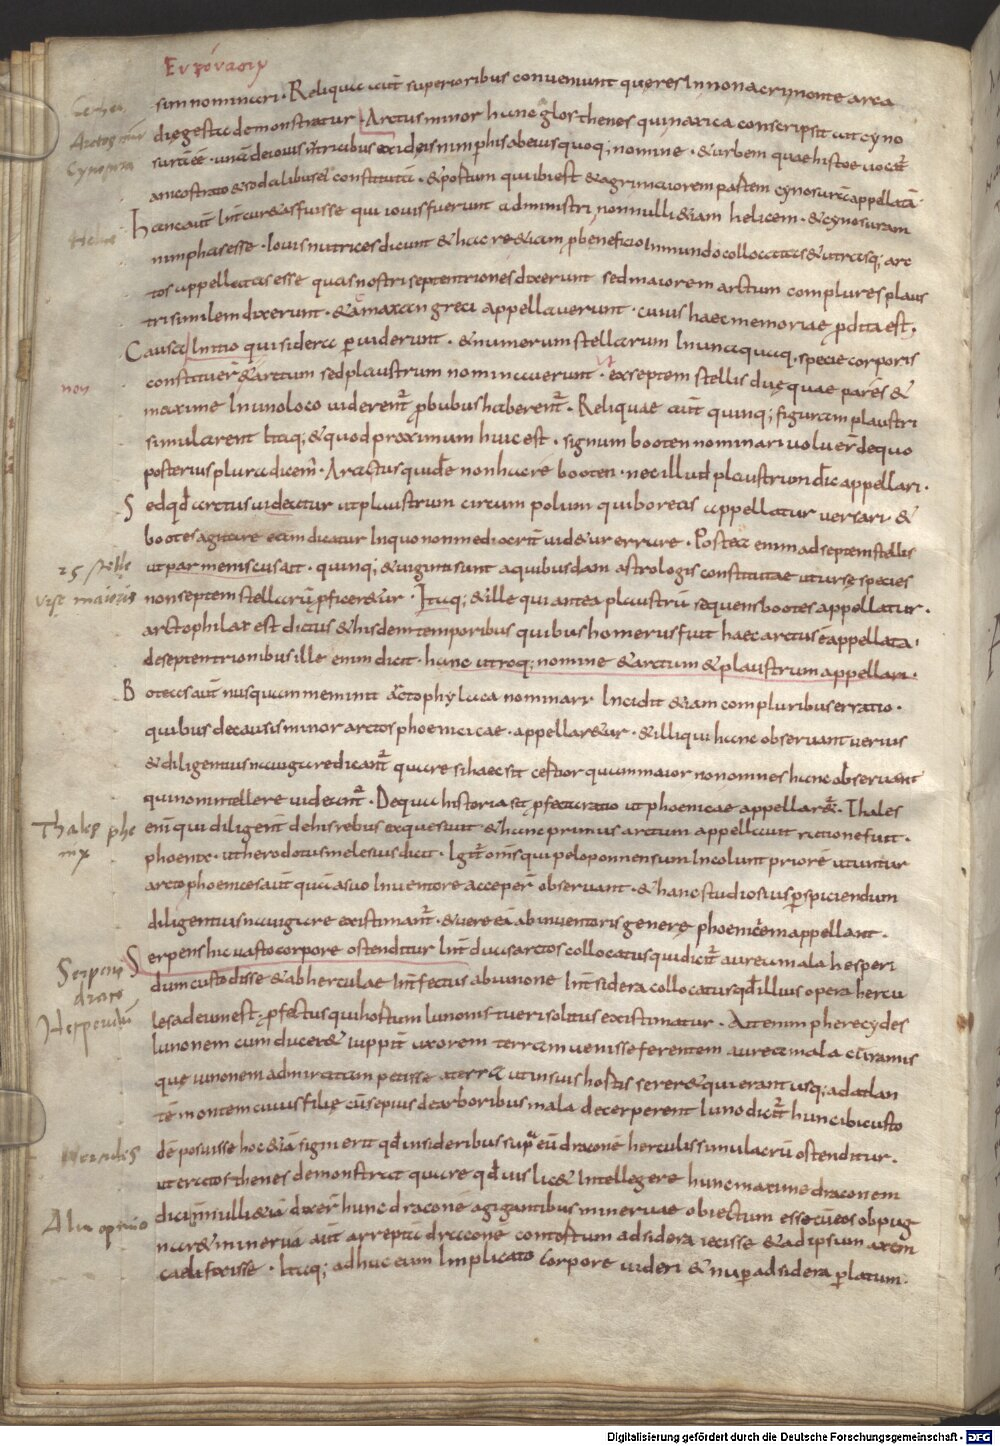 Ευρόνασιν
sim nominari · Reliqua aut superioribus conveniunt que res In nonacri monte area
diegesta demonstratur · Arctus minor hunc glos thenes qui naxica conscripsit ait cyno
Cynosura
Helice
nimphas esse · Iovis nutrices dicunt & hac re &iam p beneficio In mundo collocatas & utrasq; arc
tos appellatas esse quas nostri septentriones dixerunt sed maiorem arctum complures plaus
tri similem dixerunt · & amaxan greci appellaverunt · cuius haec memoriae p dita est ·
Causa Initio qui sidera p viderunt · & numerum stellarum In unaquaq, specie corporis
non
constituer & arctum sed plaustrum nominaverunt · ut ex septem stellis duę quae pares &
maxime In uno loco viderent p bubus haberent · Reliquae aut quinq; figuram plaustri
simularent Itaq; & quod proximum huic est · signum booten nominari voluer de quo
posterius plura dicem · Aratus quide non hac re booten · nec illud plaustrum dic appellari ·
Sed qd arctus videatur ut plaustrum circum polum qui boreus appellatur versari &
bootes agitare eam dicatur In quo non mediocrit vid&ur errare · Postea enim ad septem stellis
25 stelle
ut parmeniscus ait · quinq; & viginti sunt a quibusdam astrologis constitutae ut ursę species
urse maioris
non septem stellaru pficer&ur · Itaq; & ille qui antea plaustru sequens bootes appellatur ·
arctophilax est dictus & hisdem temporibus quibus homerus fuit haec arctus e appellata ·
de septentrionibus ille enim dicit · hanc utroq; nomine & arctum & plaustrum appellari ·
Bootes aut nusquam meminit arctophylaca nominari · Incidit &iam compluribus erratio ·
quibus de causis minor arctos phoenicae · appellar&ur · & illi qui hanc observant verius
& diligentius navigare dicant quare si haec sit certior quam maior non omnes hanc observant
qui non intellere videunt · De qua historia sit pfecta ratio ut phoenicae appellar& · Thales
Thales phe
nix
eni qui diligent de his rebus exquesivit & hanc primus arctum appellavit natione fuit ·
phoenix · ut herodotus melesius dicit · Igit omis qui peloponnensum Incolunt priore utuntur
arcto phoenices aut qua a suo Inventore acceper observant · & hanc studiosius pspiciendum
diligentius navigare existimant · & vere ea ab inventoris genere phoenicem appellant ·
Serpens
draco
Hesperidum
Serpens hic vasto corpore ostenditur Int duas arctos collocatus qui dicit aurea mala hesperi
dum custodisse & ab herculae Intfectus a iunone Int sidera collocatus qd illius opera hercu
les ad eum est · pfectus qui hortum Iunonis tueri solitus existimatur · Ait enim pherecydes
Iunonem cum ducer& iuppit uxorem terram venisse ferentem aurea mala cu ramis
que iunonem admiratam petisse a terra ut in suis hortis serer& qui erant usq; ad atlan
te montem cuius filię cu sepius de arboribus mala decerperent Iuno dicit hunc ibi custo
Hercules
de posuisse hoc &ia signi erit qd in sideribus supra eu dracone herculis simulacru ostenditur ·
ut eratosthenes demonstrat quare qd uis lic& Intellegere hunc maxime draconem
Alia opinio
dici nnulli &ia dixer hunc dracone a gigantibus minervae obiectum esse cu eos obpug
nar& minerva aut arreptu dracone contortum ad sidera iecisse & ad ipsum axem
caeli fixisse · Itaq; adhuc eum Implicato corpore videri & nup ad sidera platum ·
Digitalisierung gefördert durch die Deutsche Forschungsgemeinschaft - DFG